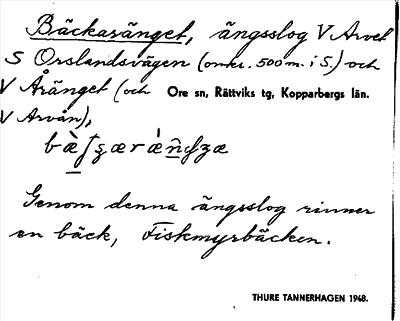 Bäckasänget, ängsslog V Arvet
S Orslandsvägen (omkr. 500 m. i S.) och
V Åränget (och Ore sn, Rättviks tg, Kopparbergs län.
V Arvån),
Genom denna ängsslog rinner
en bäck, Fiskmyrbäcken.
THURE TANNERHAGEN 1948.